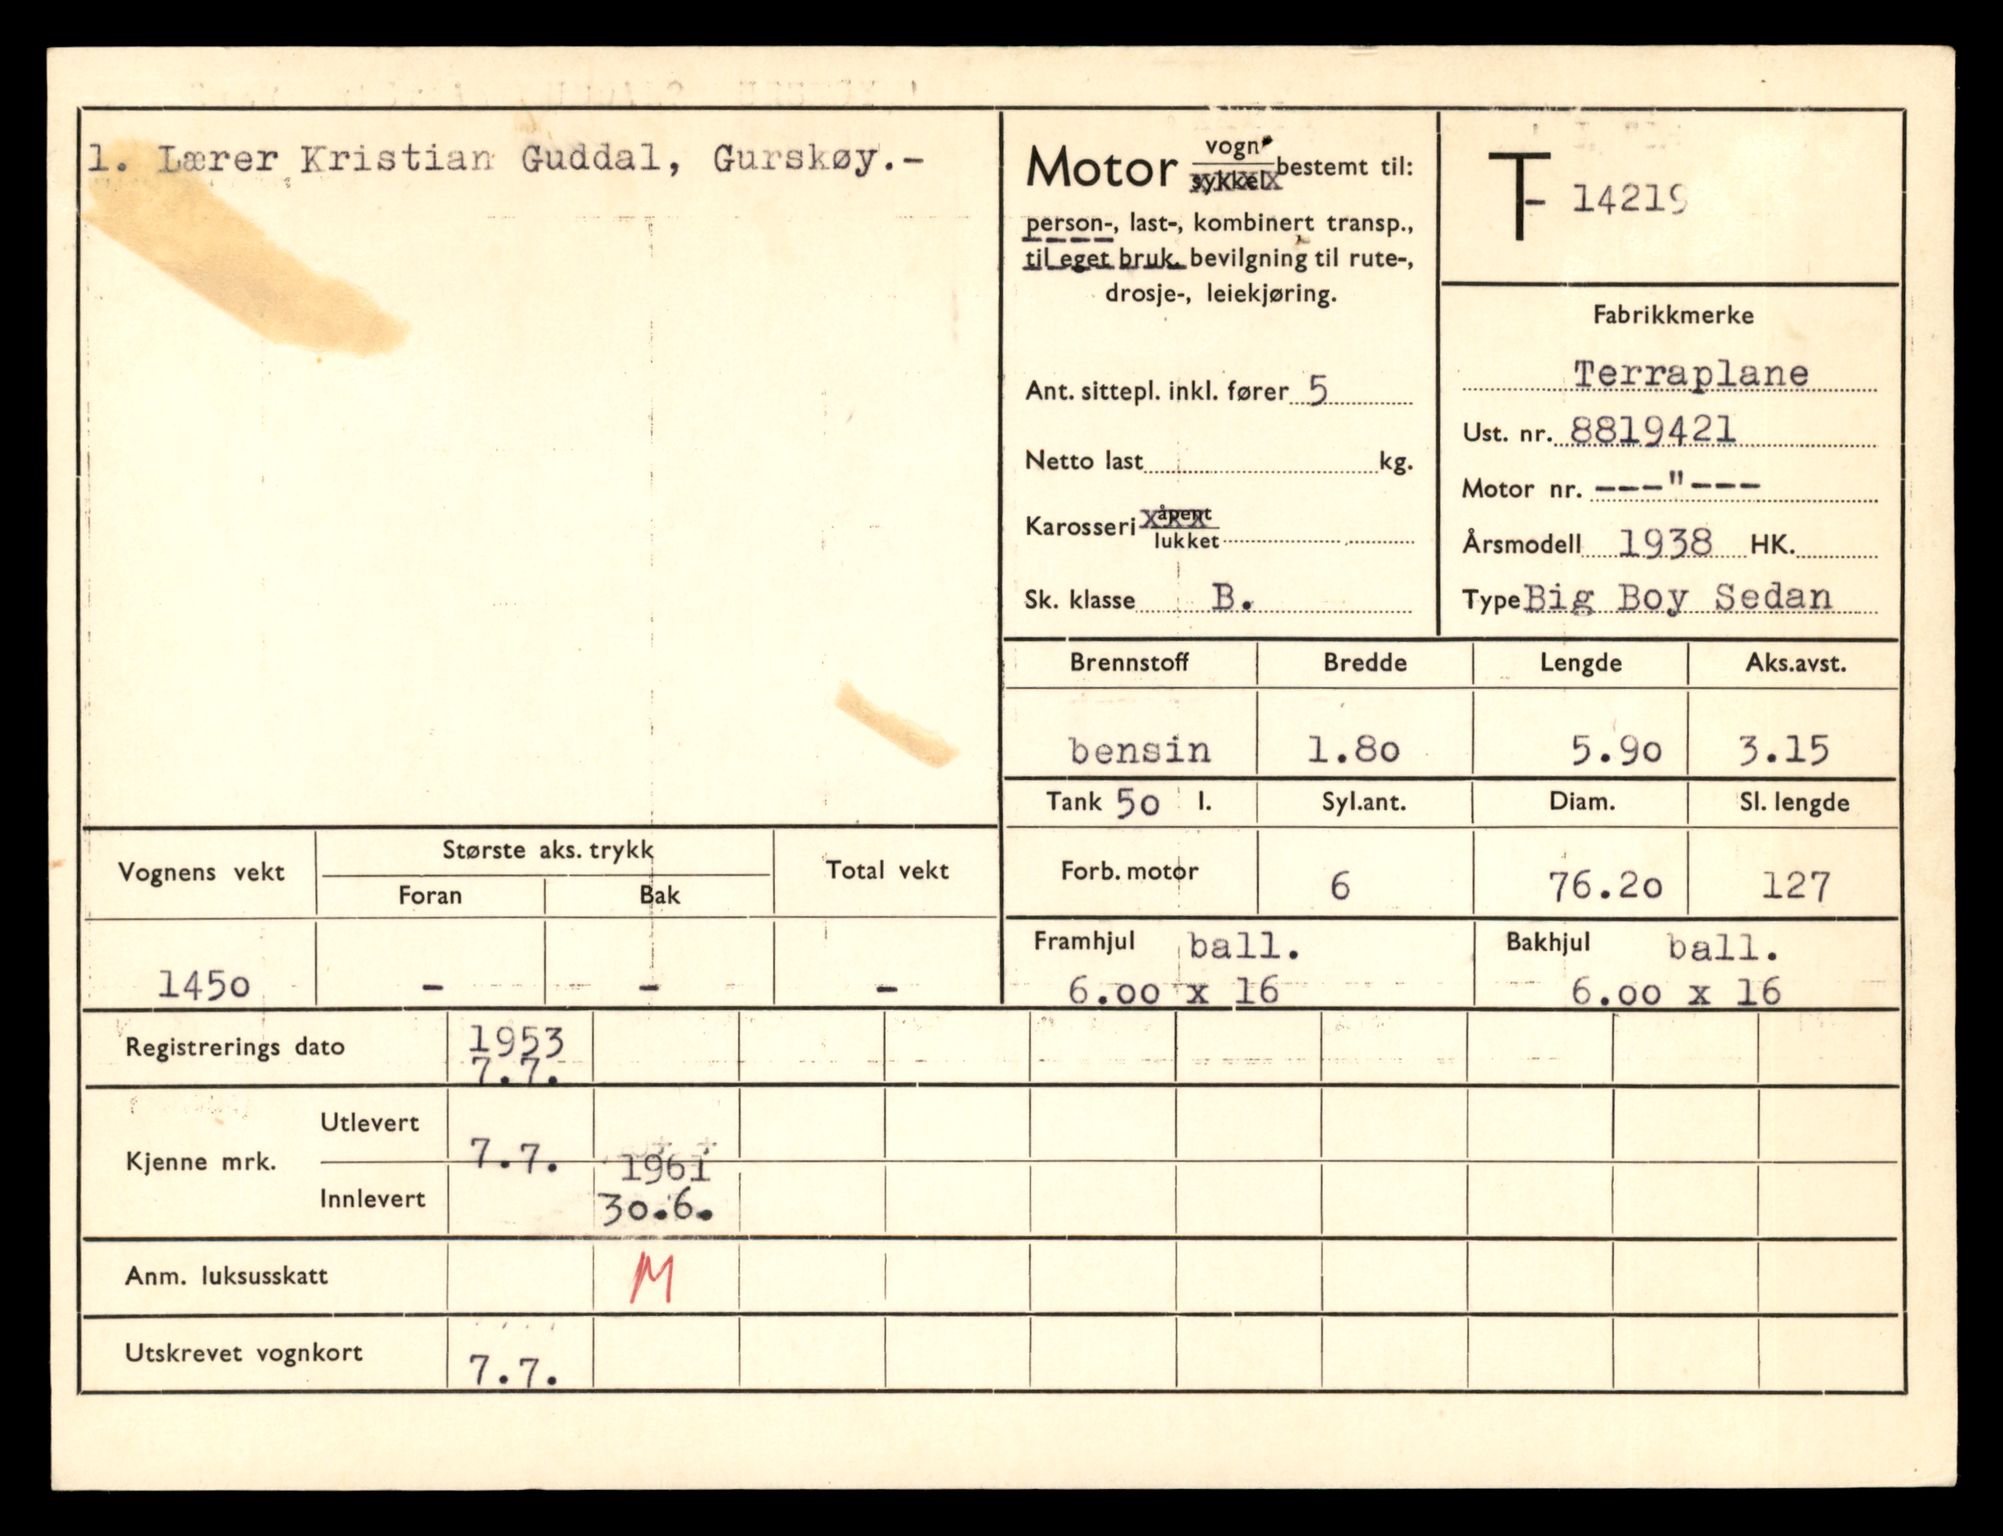 1. Lærer Kristian Guddal, Gurskøy.-
Motor vogn sykkel bestemt til:
person-, last-, kombinert transp.,
til eget bruk. bevilgning til rute-,
drosje-, leiekjøring.
Ant. sittepl. inkl. fører 5
Netto last kg.
Karosseri åpent lukket
Sk. klasse B.
T - 14219
Fabrikkmerke
Terraplane
Ust. nr. 8819421
Motor nr. ---"---
Årsmodell 1938 HK.
Type Big Boy Sedan
Brennstoff Bredde Lengde Aks.avst.
bensin 1.80 5.90 3.15
Tank 50 l. Syl.ant. Diam. Sl. lengde
Forb. motor 6 76.20 127
Framhjul ball. Bakhjul ball.
6.00 x 16 6.00 x 16
Vognens vekt Største aks. trykk Total vekt
Foran Bak
1450 - - -
Registrerings dato 1953
7.7.
Kjenne mrk. Utlevert 7.7.
1961
Innlevert 30.6.
Anm. luksusskatt M
Utskrevet vognkort 7.7.